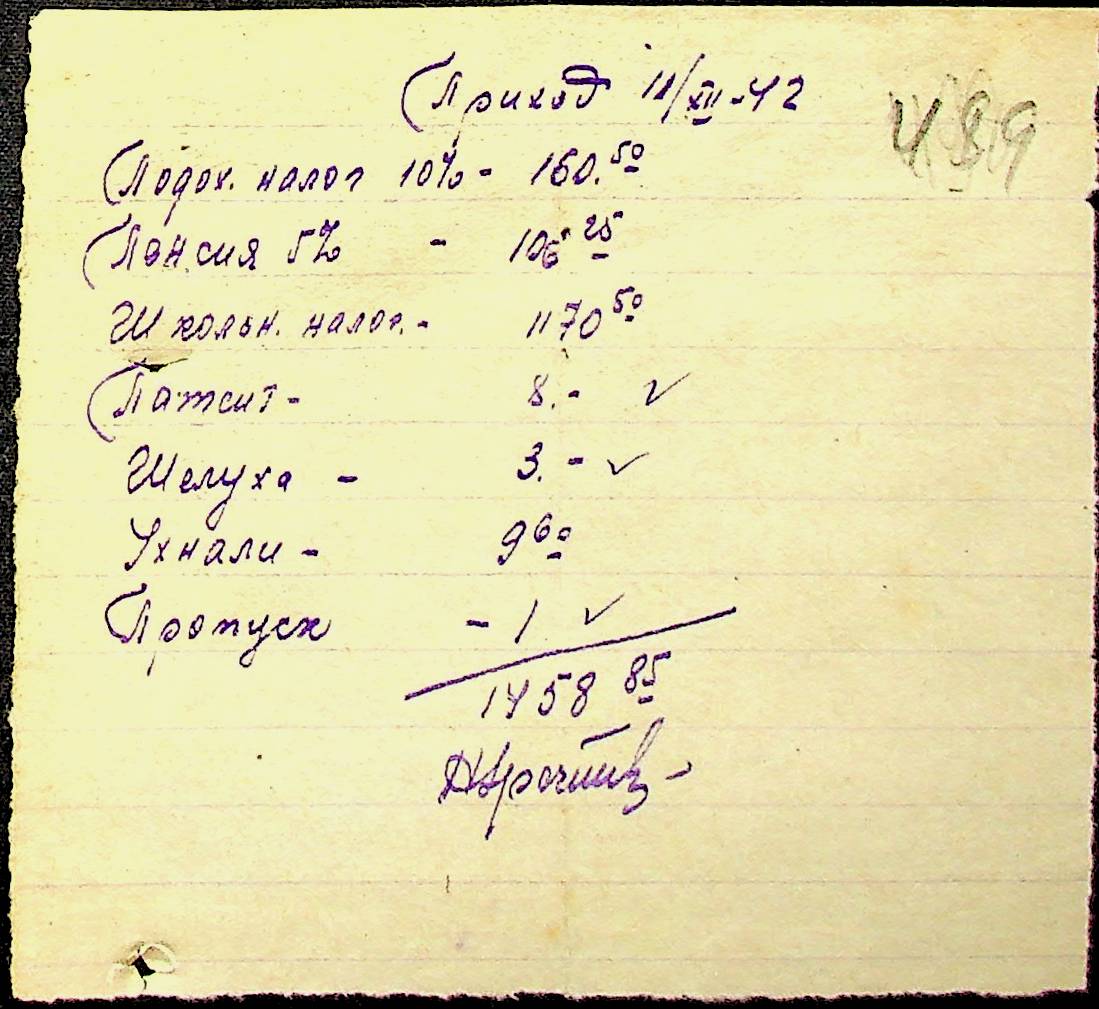 Приход 11/XII-42
489
Подох. налог 10% - 160.50
Пенсия 5% - 106 25
Школьн. налог. - 1170 50
Патент - 8. - ✓
Шелуха - 3. - ✓
Ухнали - 9 60
Пропуск - 1 ✓
1458 85